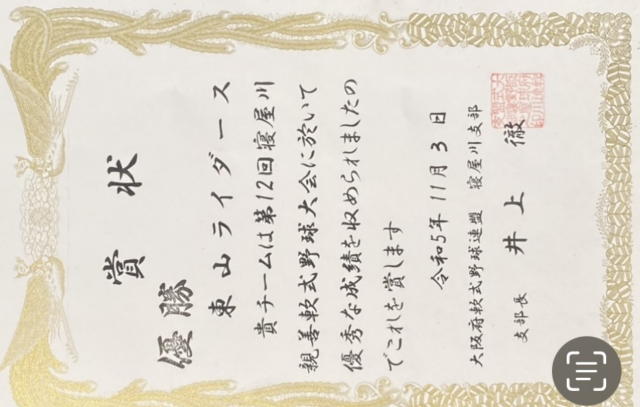 賞状
優勝
東山ライダース
貴チームは第12回寝屋川
親善軟式野球大会に於いて
優秀な成績を収められましたの
でこれを賞します
令和5年11月3日
大阪府軟式野球連盟 寝屋川支部
支部長 井上 徹